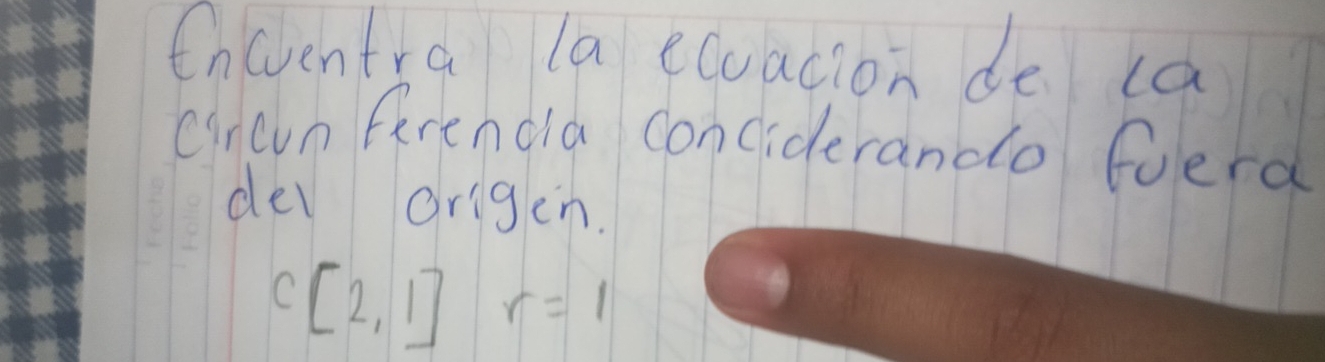 Encuentra la ecuación de la
circunferencia conciderando fuera
del origen.
C[2,1] r=1
Fecha
Folio